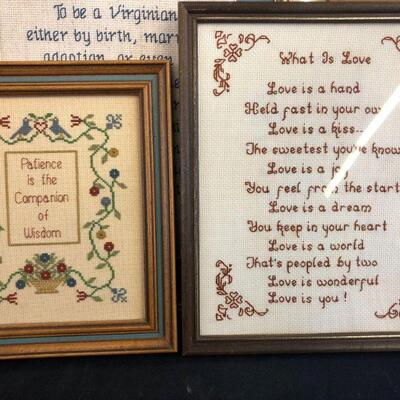 To be a Virginian
either by birth,
adoption, or even
Patience
is the
Companion
of
Wisdom
What Is Love
Love is a hand
Held fast in your
Love is a kiss..
The sweetest you've know
Love is a joy
You feel from the start
Love is a dream
You keep in your heart
Love is a world
That's peopled by two
Love is wonderful
Love is you!